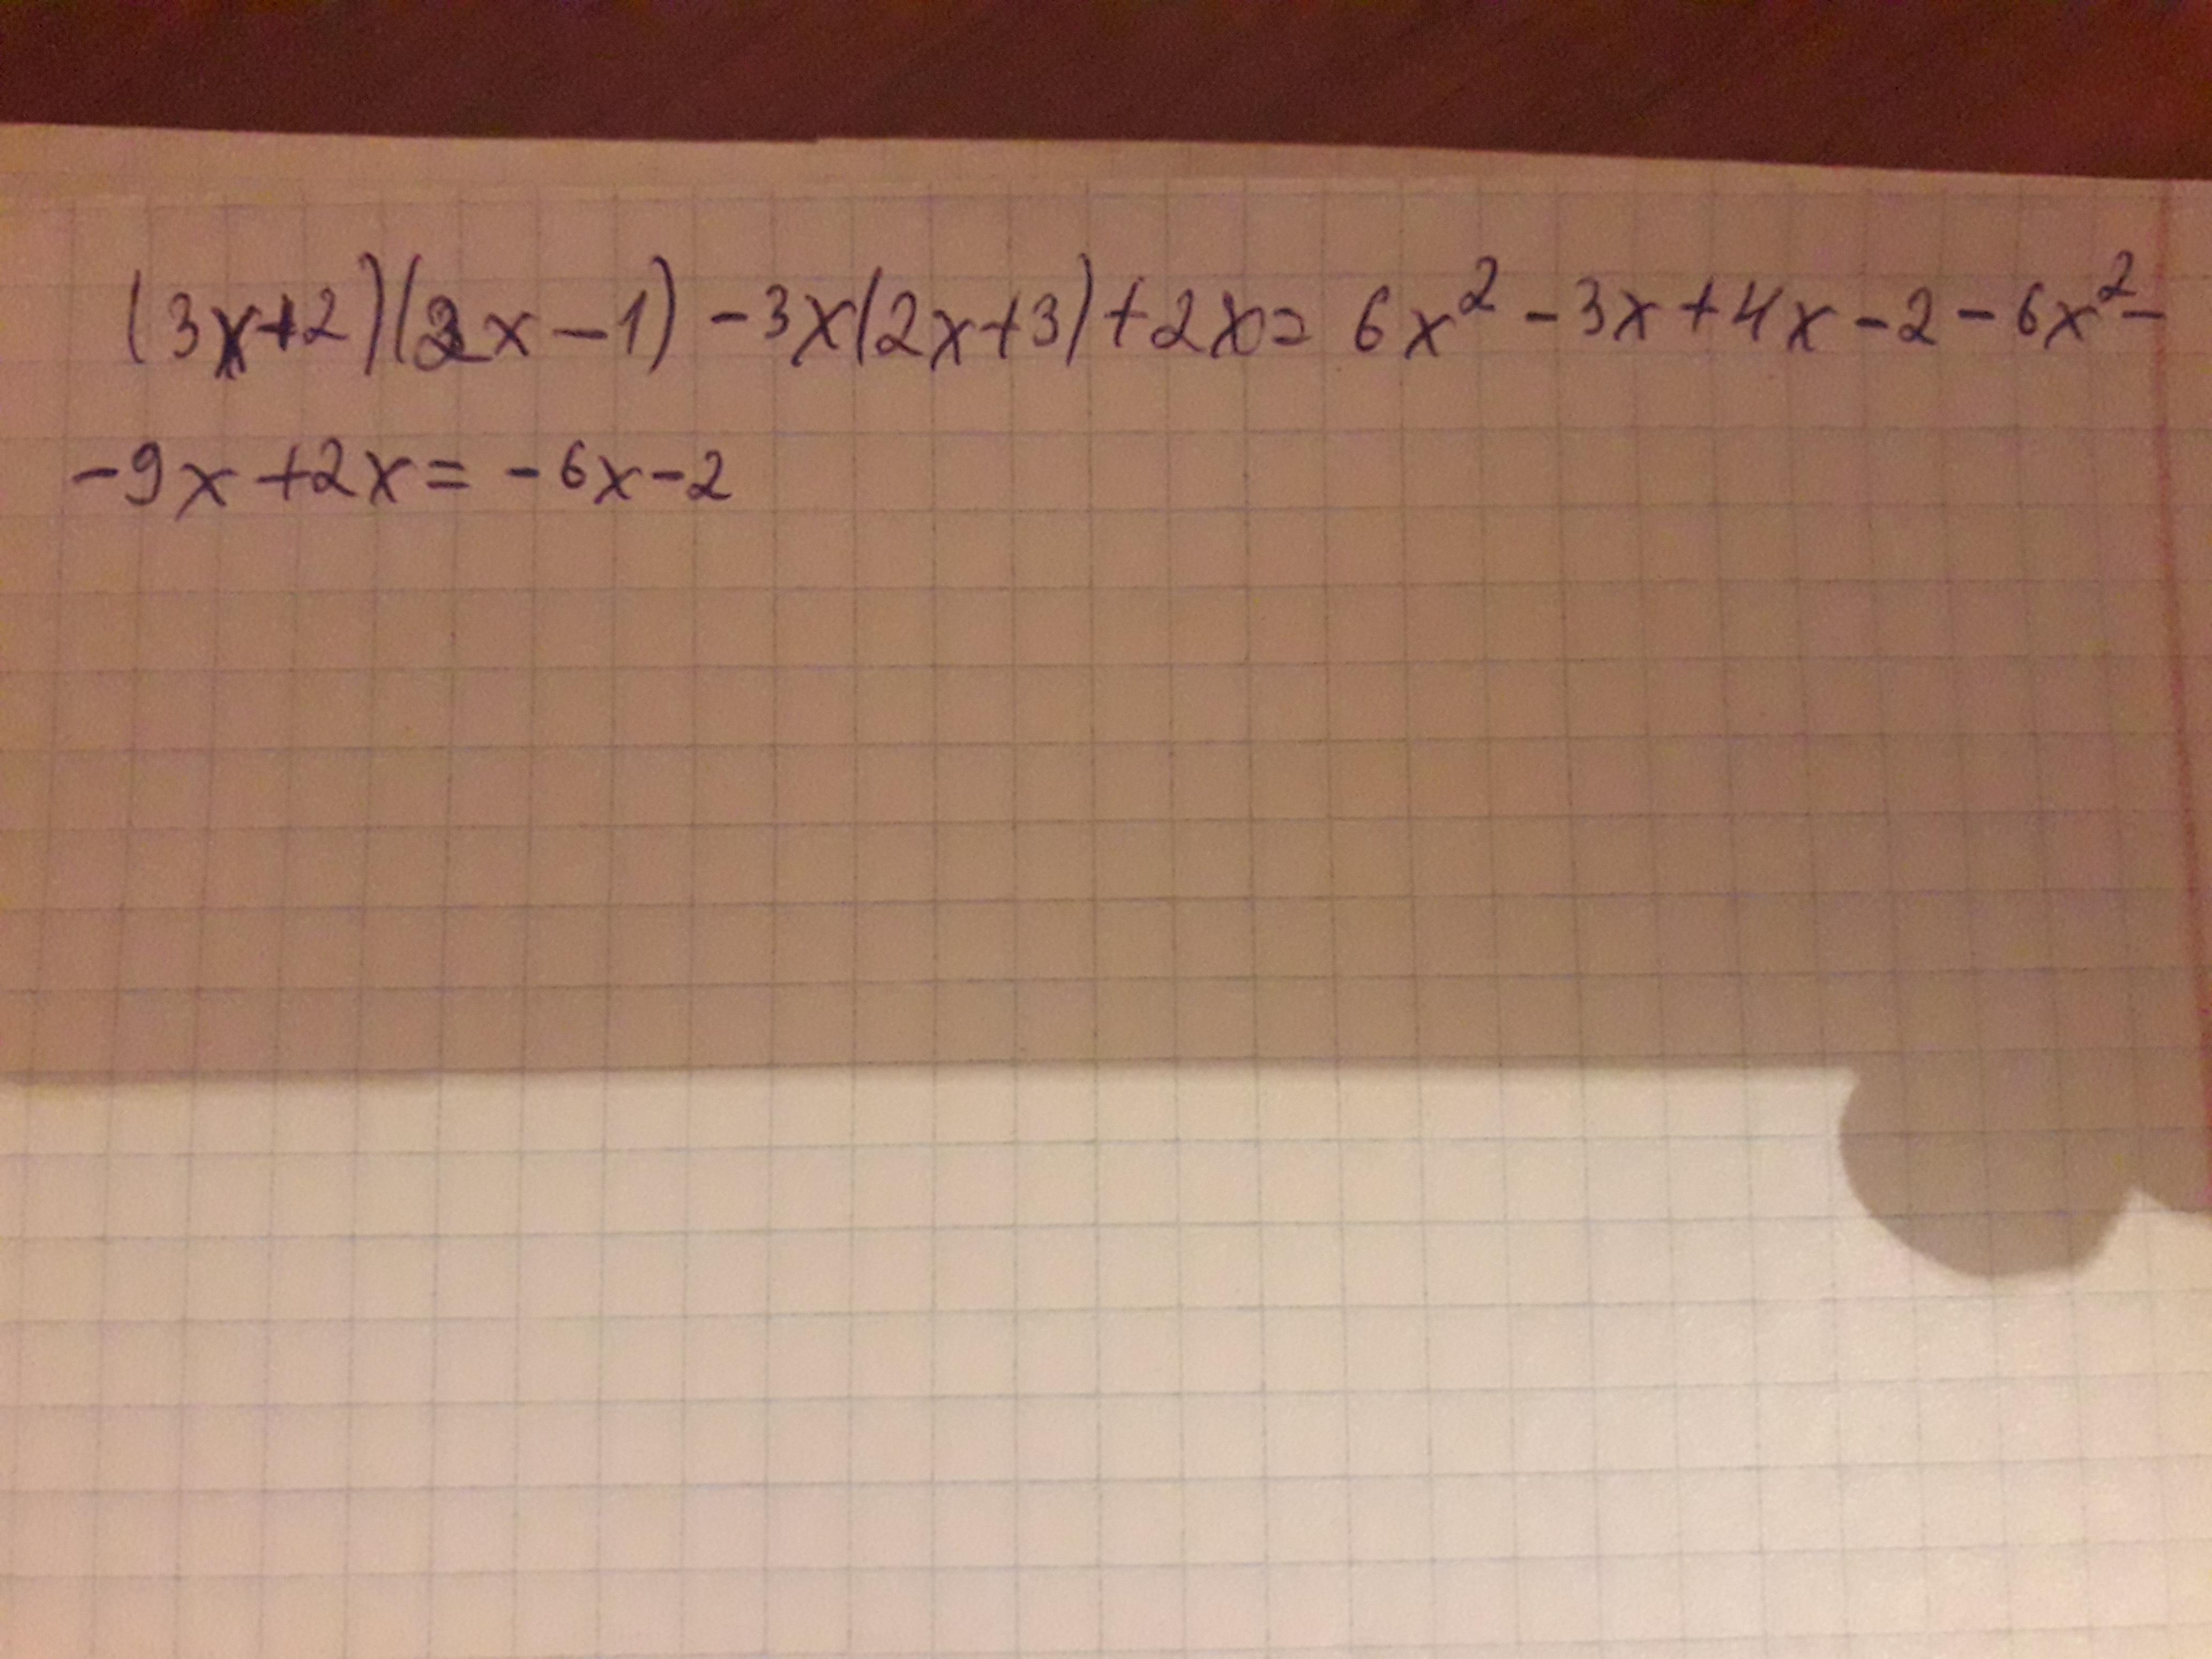 (3x+2)(2x-1)-3x(2x+3)+2x=6x²-3x+4x-2-6x²-
-9x+2x=-6x-2